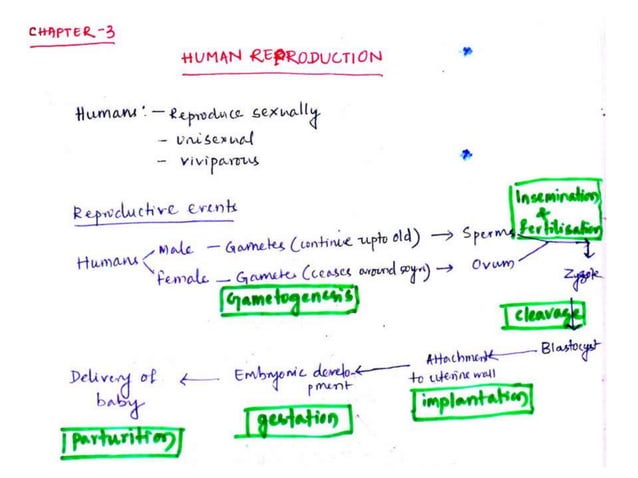 CHAPTER-3
HUMAN REPRODUCTION
Humans:- Reproduce sexually
- unisexual
- viviparous
Reproductive events
Insemination
&
fertilisation
Humans
Male - Gametes (continue upto old) → Sperms
Female - Gametes (ceases around 50yr) → Ovum
Zygote
Gametogenesis
cleavage
Blastocyst
Attachment
to uterine wall
implantation
Embryonic develo-
pment
gestation
Delivery of
baby
parturition